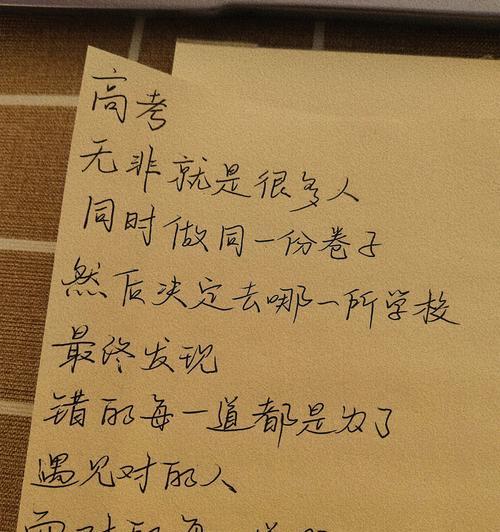 高考
无非就是很多人
同时做同一份卷子
然后决定去哪一所学校
最终发现
错的每一道都是为了
遇见对的人
而对的每一道